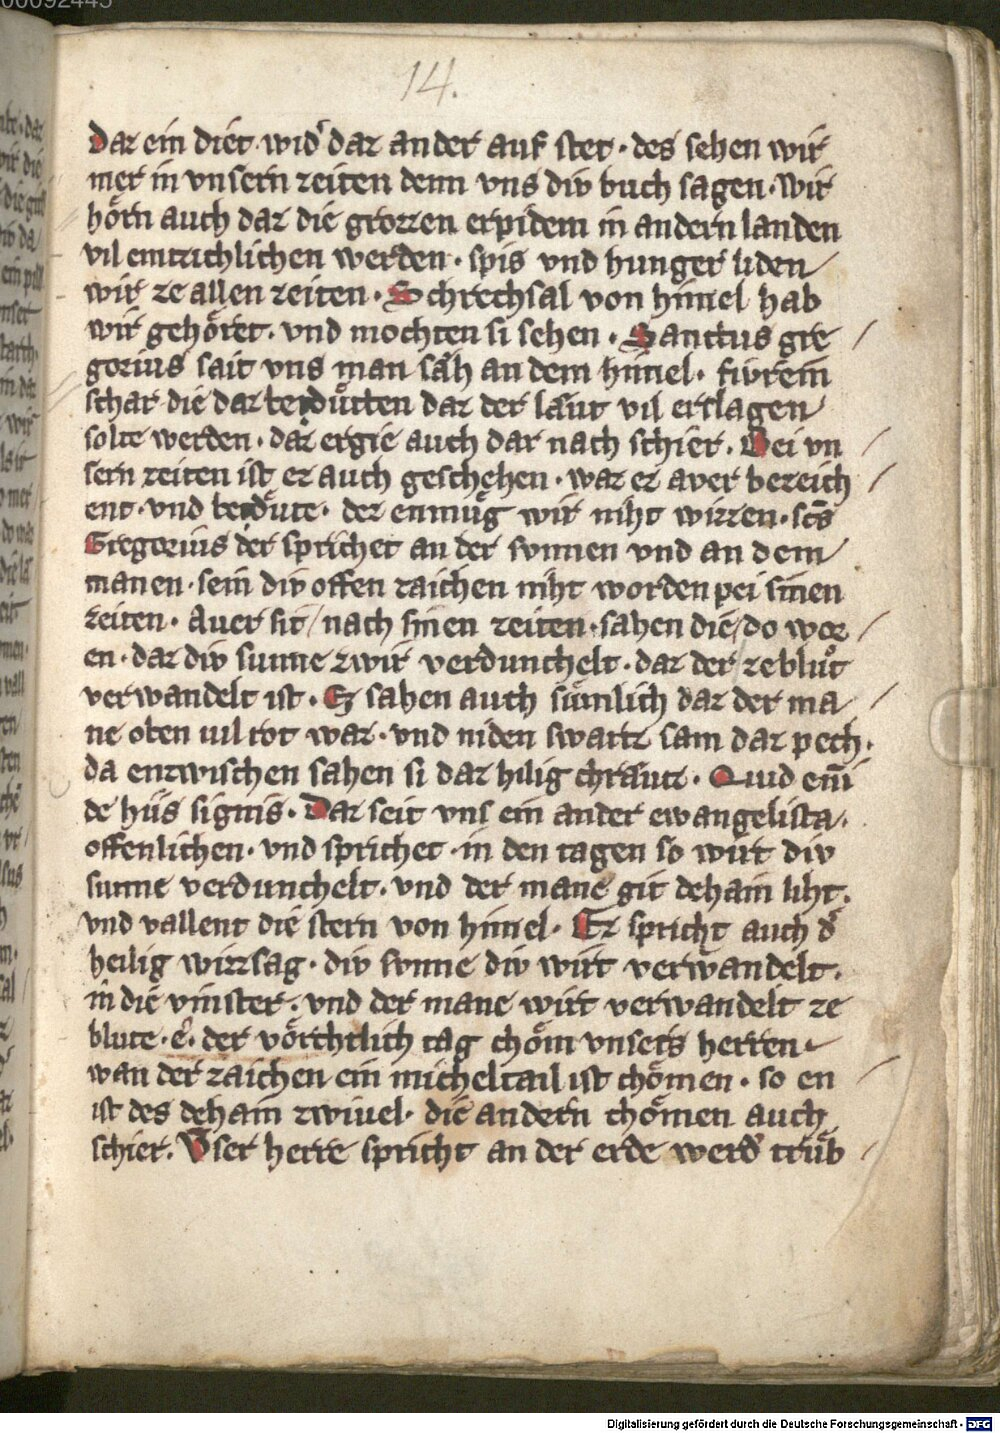 00092445
14.
Daz ein diet wid̾ daz ander auf stet · des sehen wir
mer in vnsern zeiten denn vns div buch sagen · wir
hoͤrn auch daz die grozzen erpidem in andern landen
vil emtzichlichen werden · spis vnd hunger liden
wir ze allen zeiten · Schrechsal von himel hab
wir gehoͤret · vnd mochten si sehen · Sanctus gre
gorius sait vns man saͤh an dem himel · fivrein
schar die daz bedûtten daz der laͤut vil erslagen
solte werden · daz ergie auch dar nach schier. Bei vn
sern zeiten ist ez auch geschehen · waz ez aver bezeich
ent · vnd bedaͤute · dez enmuͤg wir niht wizzen · scs̄
Gregorius der sprichet an der svnnen vnd an dem
manen · sein div offen zaichen niht worden pei sinen
zeiten · Auer sit nach sinen zeiten · sahen die do wor
en · daz div sunne zwir verdunchelt · daz der ze bluͦt
verwandelt ist · Ez sahen auch suͤmlich daz der ma
ne oben uil rot waz · vnd niden swartz sam daz pech ·
da enzwischen sahen si daz hilig chraͤutz · Quid enī
de hiis signis · Daz seit vns ein ander ewangelista ·
offenlichen · vnd sprichet · in den tagen so wirt div
sunne verdunchelt · vnd der mane git dehain liht ·
vnd vallent die stern von himel · Ez spricht auch d̾
heilig wizzsag · div svnne div wirt verwandelt ·
in die vinster · vnd der mane wirt verwandelt ze
blute · e · der voͤrchtlich tag choͤm vnsers herren
wan der zaichen ein michel tail ist choͤmen · so en
ist des dehain zwiuel · die andern choͤmen auch
schier. V̄ser herre spricht an der erde werd̾ truͤb
Digitalisierung gefördert durch die Deutsche Forschungsgemeinschaft - DFG